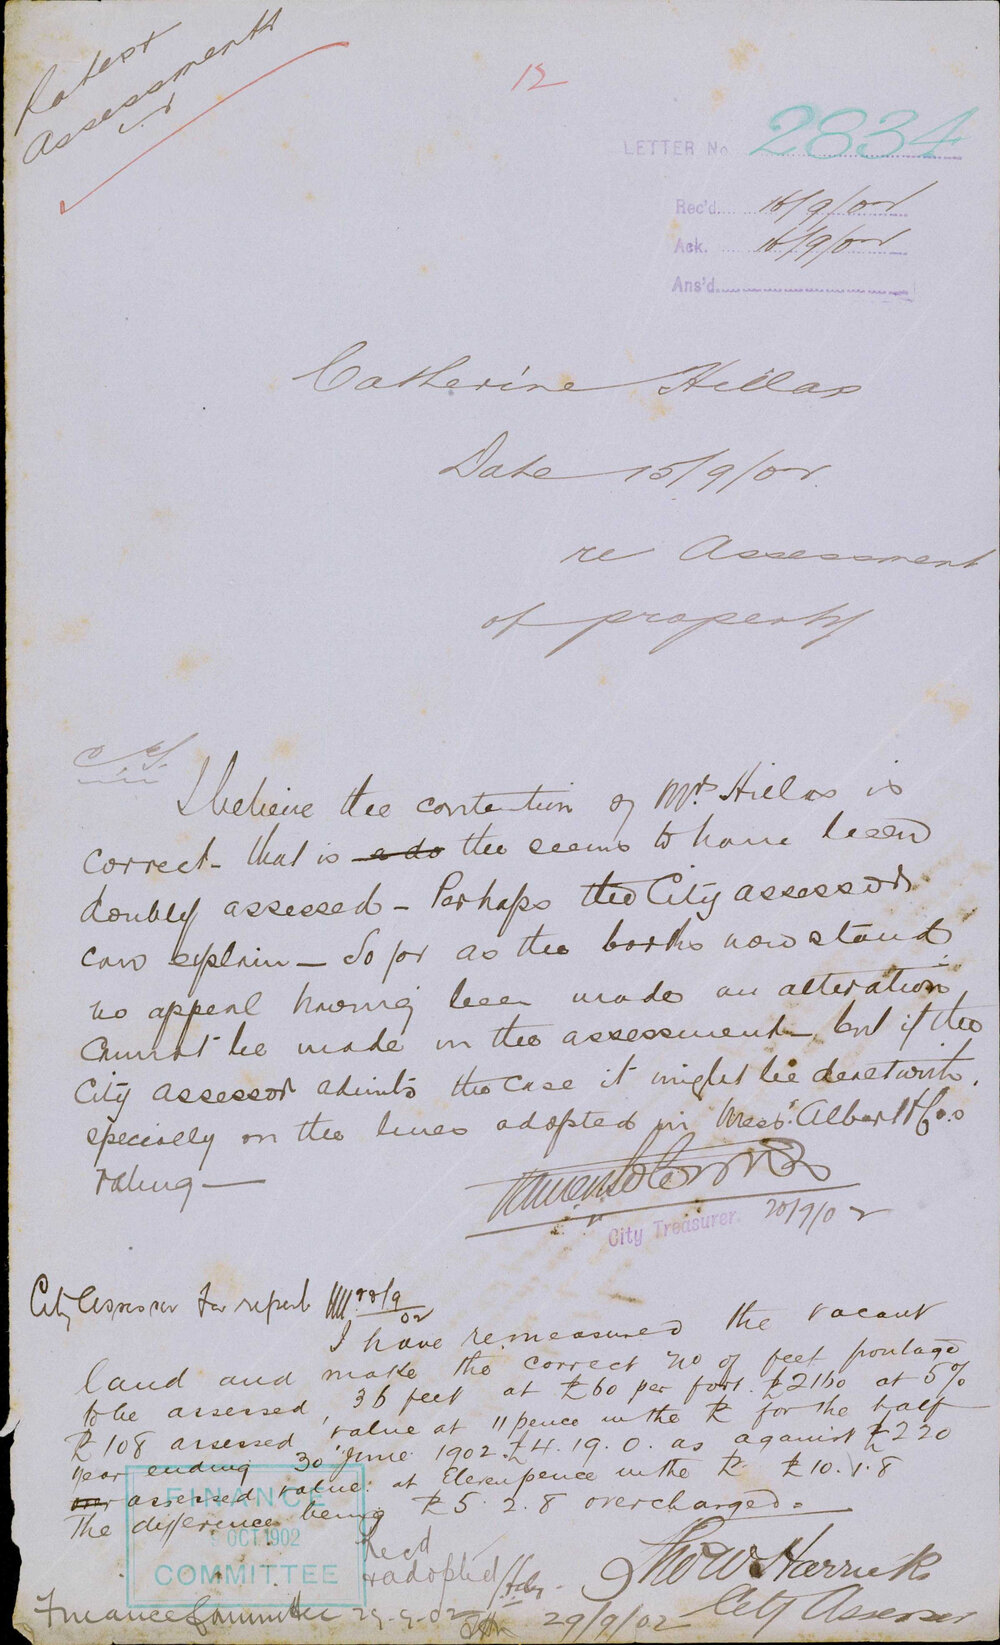 Rates &
Assessments
12
LETTER No 2834
Rec'd 16/9/02
Ack. 16/9/02
Ans'd
Catherine Hillas
Date 15/9/02
re Assessment
of property
I believe the contention of Mrs Hillas is
correct - that is the seems to have been
doubly assessed - Perhaps the City assessor
can explain - So far as the books now stand
no appeal having been made an alteration
cannot be made in the assessment - but if the
City assessor admits the case it might be dealt with,
specially on the lines adopted in Messrs Albert & Co.s
rating -
City Treasurer.
20/9/02
City Assessor for report 20/9/02
I have remeasured the vacant
land and make the correct no of feet frontage
to be assessed, 36 feet at £60 per foot. £2160 at 5%
£108 assessed value at 11 pence in the £ for the half
year ending 30 June 1902. £4.19.0. as against £220
assessed value at Elevenpence in the £ £10.1.8
The difference being £5.2.8 overcharged.
FINANCE
9 OCT. 1902
COMMITTEE
Recd
& adopted
Finance Committee 29-9-02
29/9/02
City Assessor